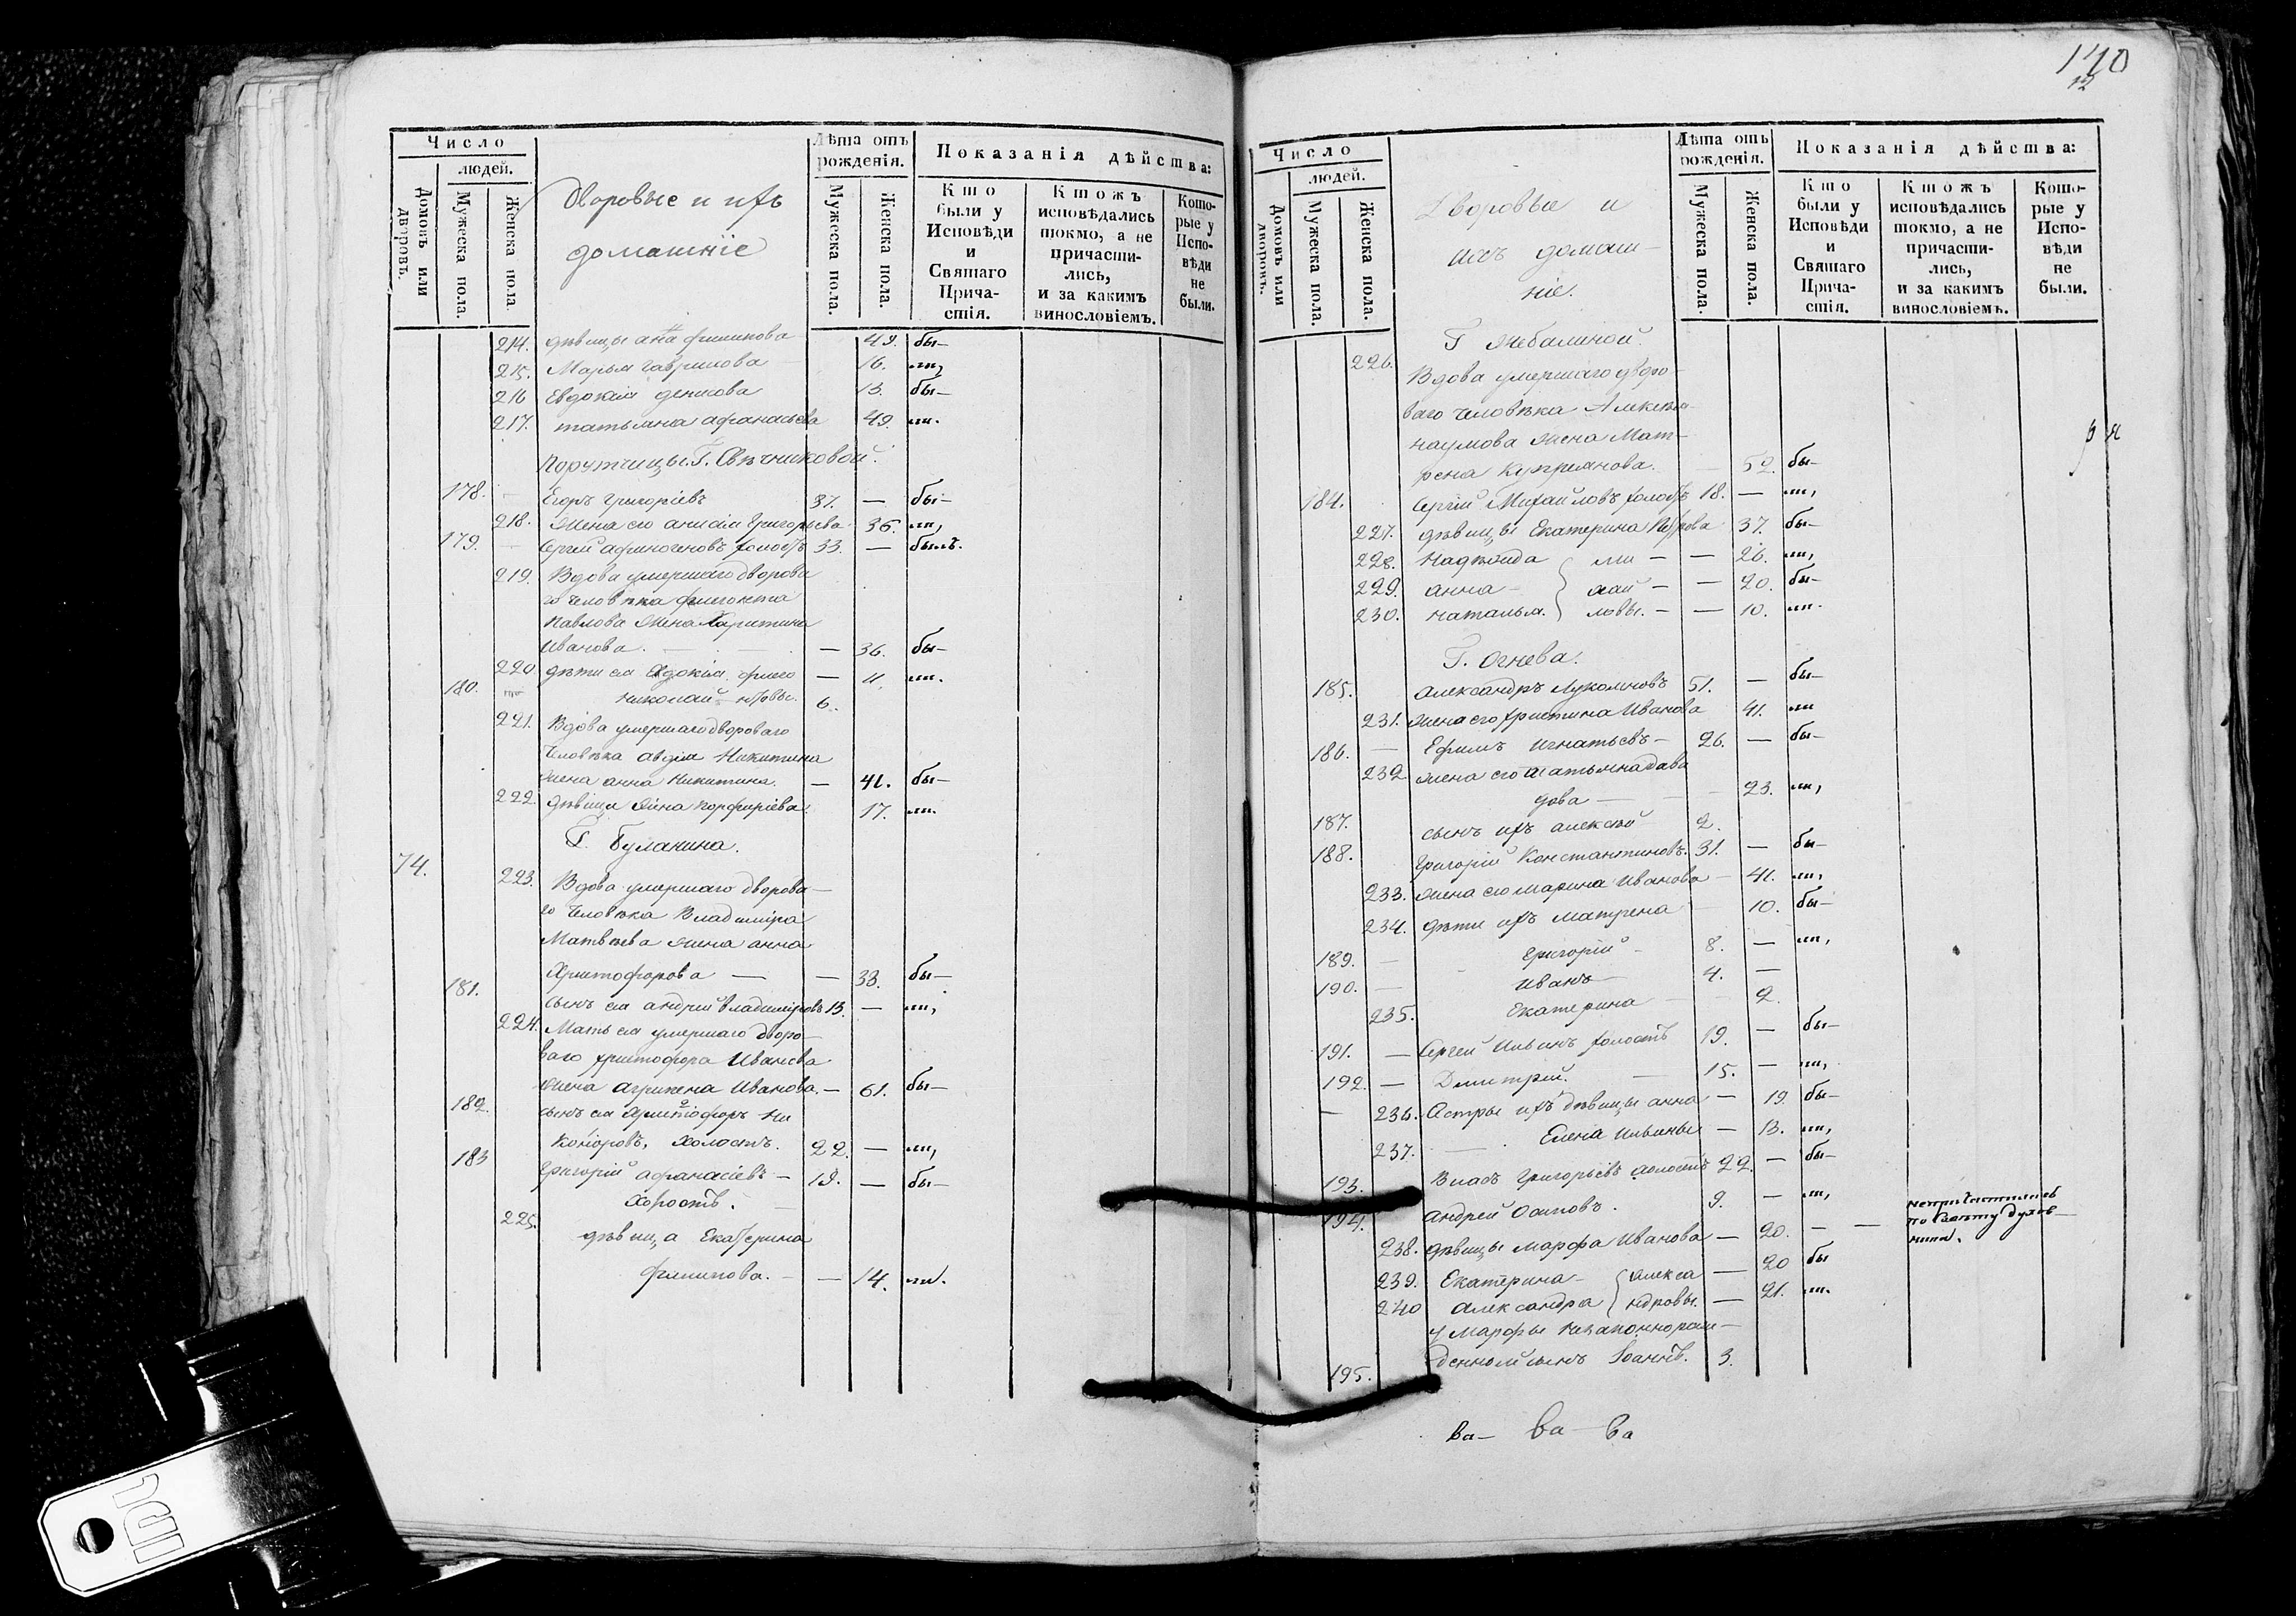 Число
людей.
Домовъ или дворовъ.
Мужеска пола.
Женска пола
Дворовые и ихъ
домашніе
Лѣта отъ рожденія.
Мужеска пола.
Женска пола.
Показанія дѣйства:
Кто были у Исповѣди и Святаго Причастія.
Ктожъ исповѣдались токмо, а не причастились, и за какимъ винословіемъ.
Которые у Исповѣди не были.
214. дѣвицы анна филипова 49. бы—
215. Марья Гаврилова 16. ли,
216 Евдокія денисова 13. бы—
217. татьяна афанасьева 49. ли.
Порутчицы Г. Свѣчниковой.
178. Егоръ Григоріевъ 37. — бы—
218. Жена его анисія Григорьева 36. ли,
179. Сергей афиногеновъ холостъ 33. — былъ.
219. Вдова умершаго дворова
го человѣка филогонта
Павлова жена Харитина
Иванова. — 36. бы—
220. дѣти ея Евдокія фило — 11. ли.
180. Николай 6.
221. Вдова умершаго двороваго
Человѣка авдія Никитина
жена анна Никитина. — 41. бы—
222. дѣвица анна порфиріева. 17. ли.
Г. Буланина.
74.
223. Вдова умершаго дворова—
го Человѣка Владиміра
Матвѣева жена анна
Христофорова — — 33. бы—
181. сынъ ея андрей владиміровъ 13. — ли,
224. Мать ея умершаго дворо—
ваго христофора Иванова
жена агрипена Иванова. — 61. бы—
182. сынъ ея Христофоръ Ни
коноровъ, холостъ. 22. — ли,
183 Григорій афанасіевъ — 19. — бы—
Холостъ.
225. дѣвица Екатерина
филипова. — — 14. ли.
170
12
Число
людей.
Домовъ или дворовъ.
Мужеска пола.
Женска пола.
Дворовые и
ихъ домаш—
ніе.
Лѣта отъ рожденія.
Мужеска пола.
Женска пола.
Показанія дѣйства:
Кто были у Исповѣди и Святаго Причастія.
Ктожъ исповѣдались токмо, а не причастились, и за какимъ винословіемъ.
Которые у Исповѣди не были.
Г. Жебалиной.
226. Вдова умершаго дворо—
ваго человѣка Алексѣя
наумова жена Мат—
рена Купреянова. — 52. бы—
184. Сергій Михайловъ холостъ 18. — ли,
227. дѣвицы Екатерина Петрова 37. бы—
228. Надежда ми — — 26. ли,
229. анна — хай — — 20. бы—
230. наталья. ловы. — — 10. ли.
Г. Огнева.
185. александръ Лукояновъ 51. — бы—
231. жена его христина Иванова 41. ли
186. — Ефимъ Игнатьевъ — 26. — бы—
232 жена его татьянадавы
дова — 23. ли,
187. сынъ ихъ алексѣй 2.
188. Григорій Константиновъ. 31. — бы—
233. жена его марина Иванова — 41. ли,
234. дѣти ихъ матрена 10. бы—
189. — Григорій 8. — ли,
190. — иванъ — 4. —
235. Екатерина — 2.
191. — Сергей Ильинъ холостъ 19. — бы—
192. — Димитрій. — 15. — ли,
— 236. Сестры ихъ дѣвицы анна — 19. бы—
237. Елена ильины — 13. ли,
193. Власъ Григорьевъ холостъ 22. — бы—
194. андрей осиповъ. 9. — ли,
238. дѣвицы марфа Иванова — 20. — — непричастилась по совету духов— ника.
239. Екатерина — алекса — 20 бы
240 александра ндровы. — 21. ли.
у Марфы незаконнорож—
195. денной сынъ Іоаннъ. 3.
ва— ва— ва